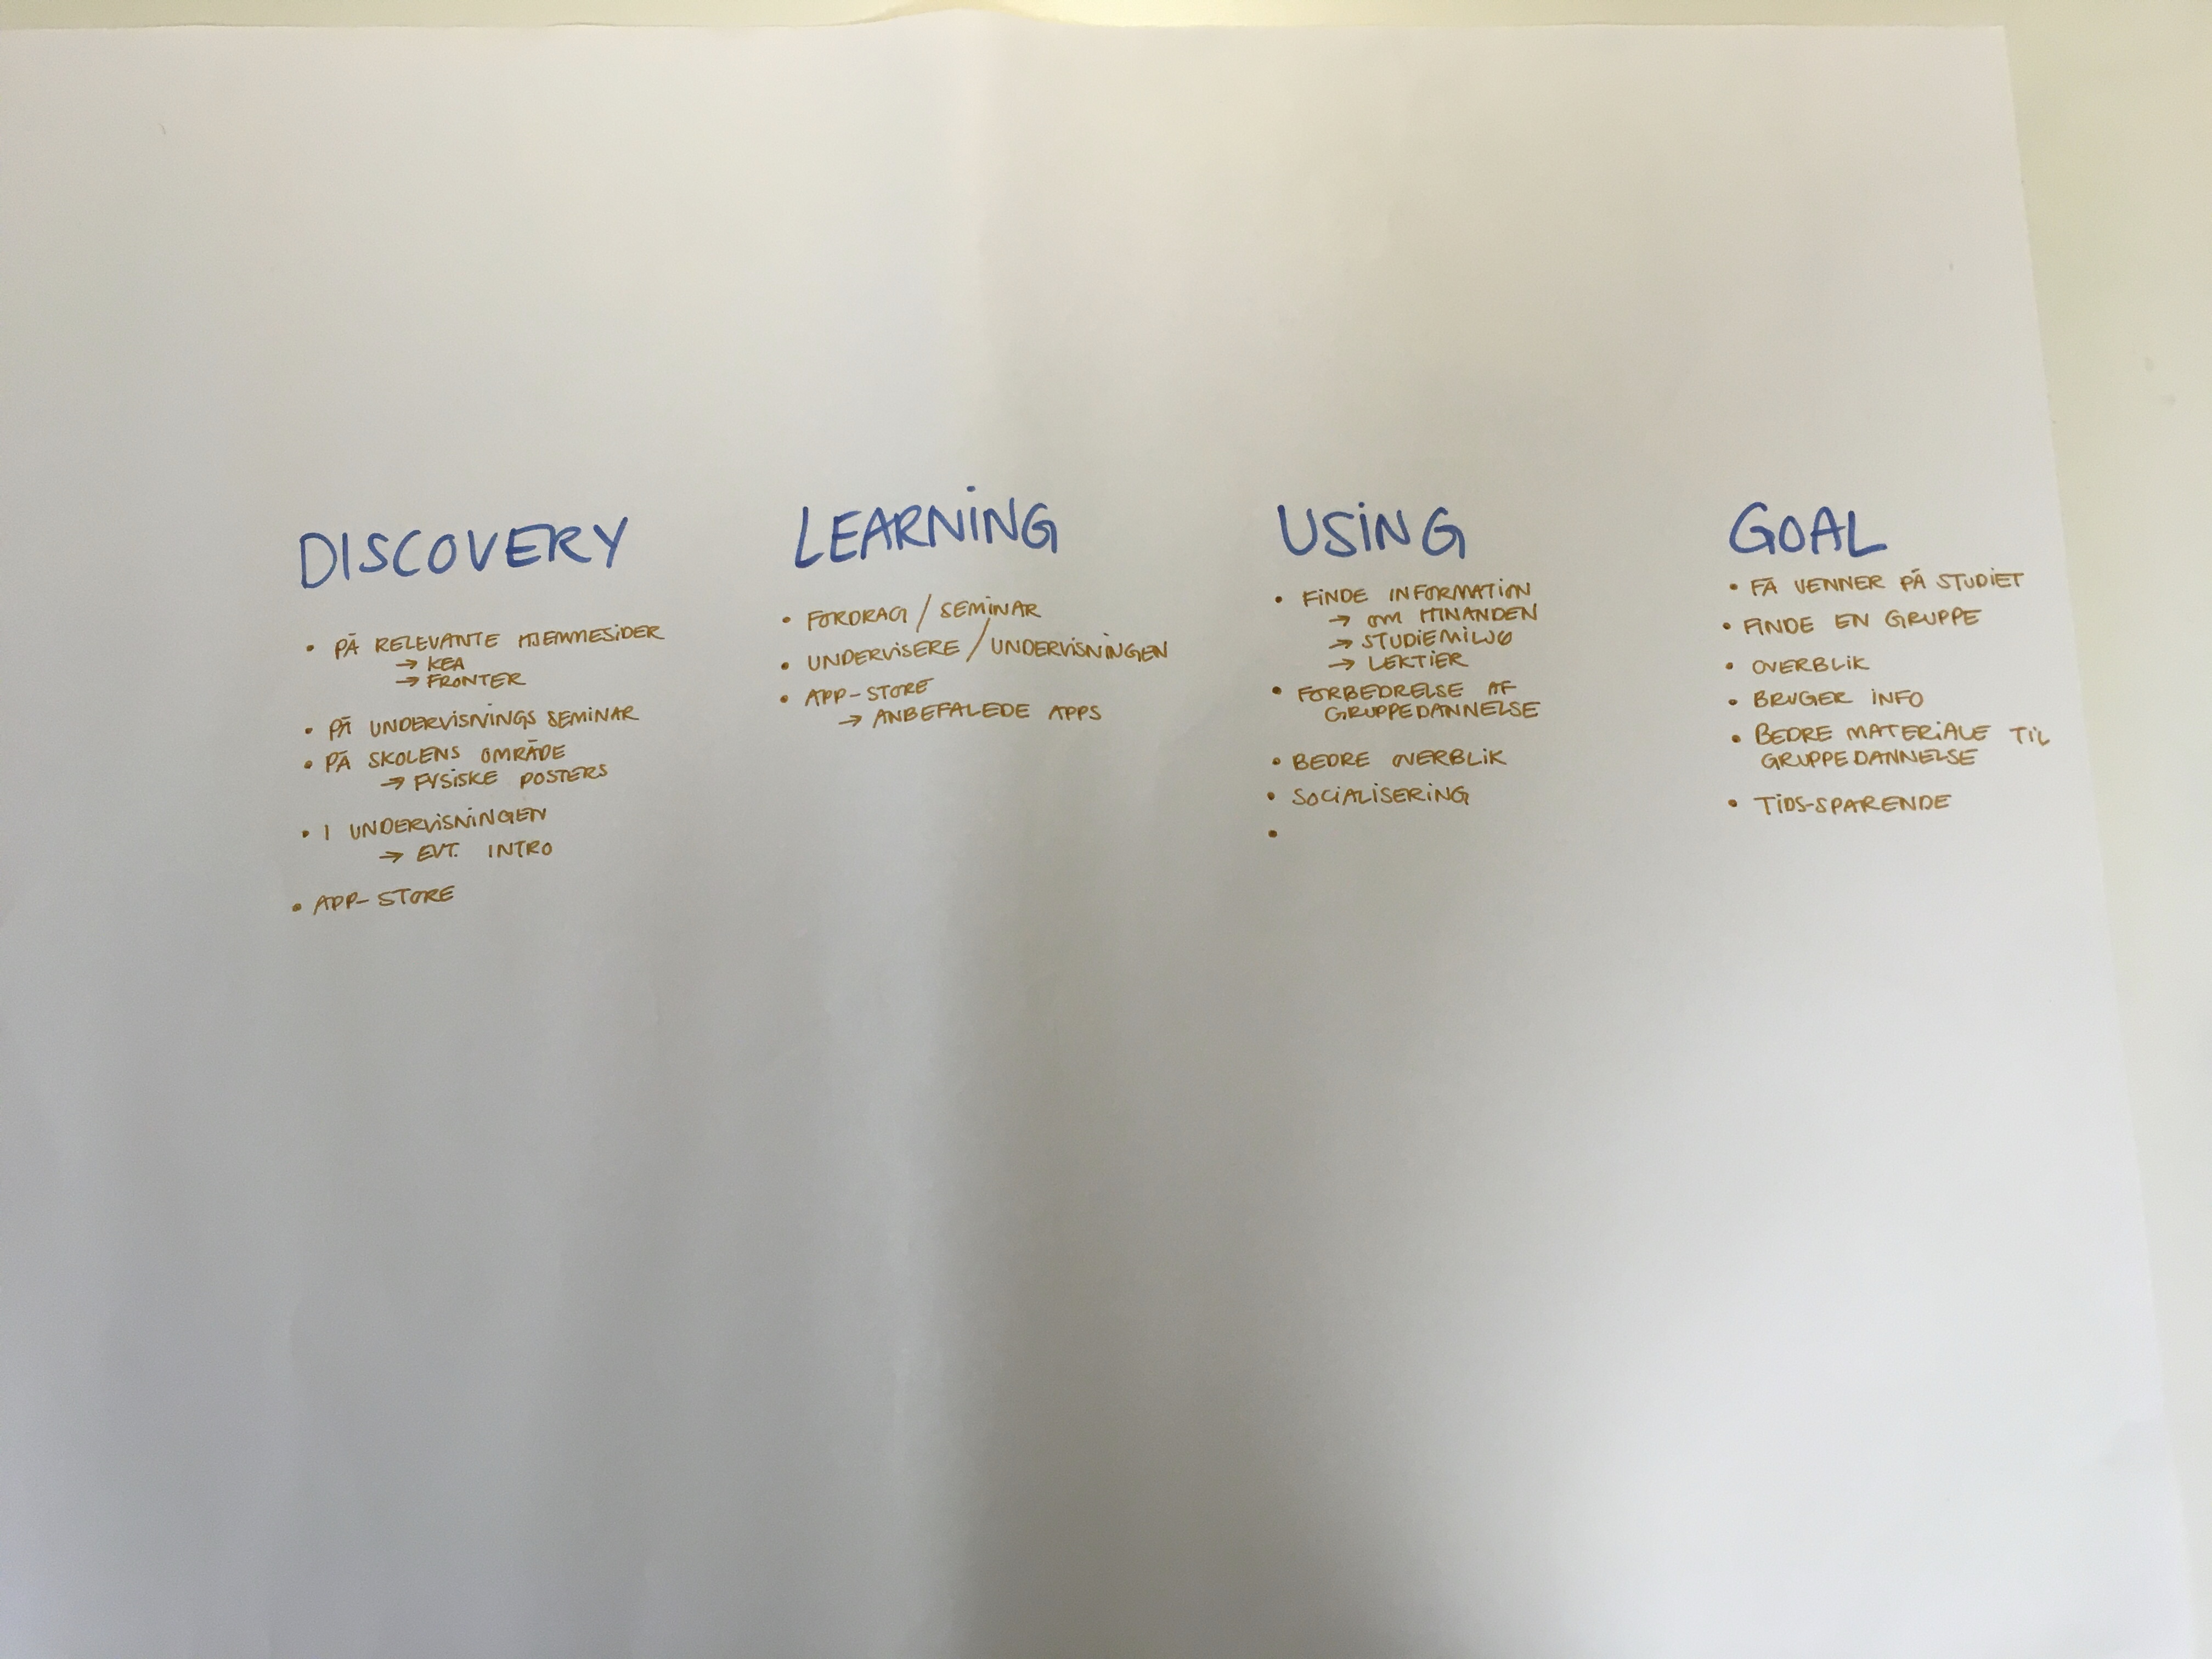 DISCOVERY
• PÅ RELEVANTE HJEMMESIDER
→ KEA
→ FRONTER
• PÅ UNDERVISNINGS SEMINAR
• PÅ SKOLENS OMRÅDE
→ FYSISKE POSTERS
• I UNDERVISNINGEN
→ EVT. INTRO
• APP-STORE
LEARNING
• FORDRAG / SEMINAR
• UNDERVISERE / UNDERVISNINGEN
• APP-STORE
→ ANBEFALEDE APPS
USING
• FINDE INFORMATION
→ OM HINANDEN
→ STUDIEMILJØ
→ LEKTIER
• FORBEDRELSE AF
GRUPPEDANNELSE
• BEDRE OVERBLIK
• SOCIALISERING
•
GOAL
• FÅ VENNER PÅ STUDIET
• FINDE EN GRUPPE
• OVERBLIK
• BRUGER INFO
• BEDRE MATERIALE TIL
GRUPPEDANNELSE
• TIDS-SPARENDE